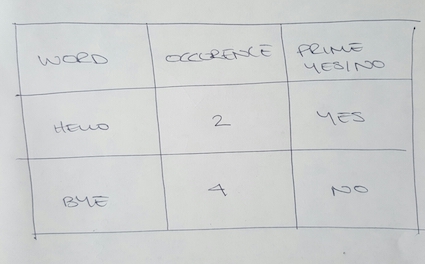 WORD OCCURENCE PRIME
YES/NO
HELLO 2 YES
BYE 4 NO